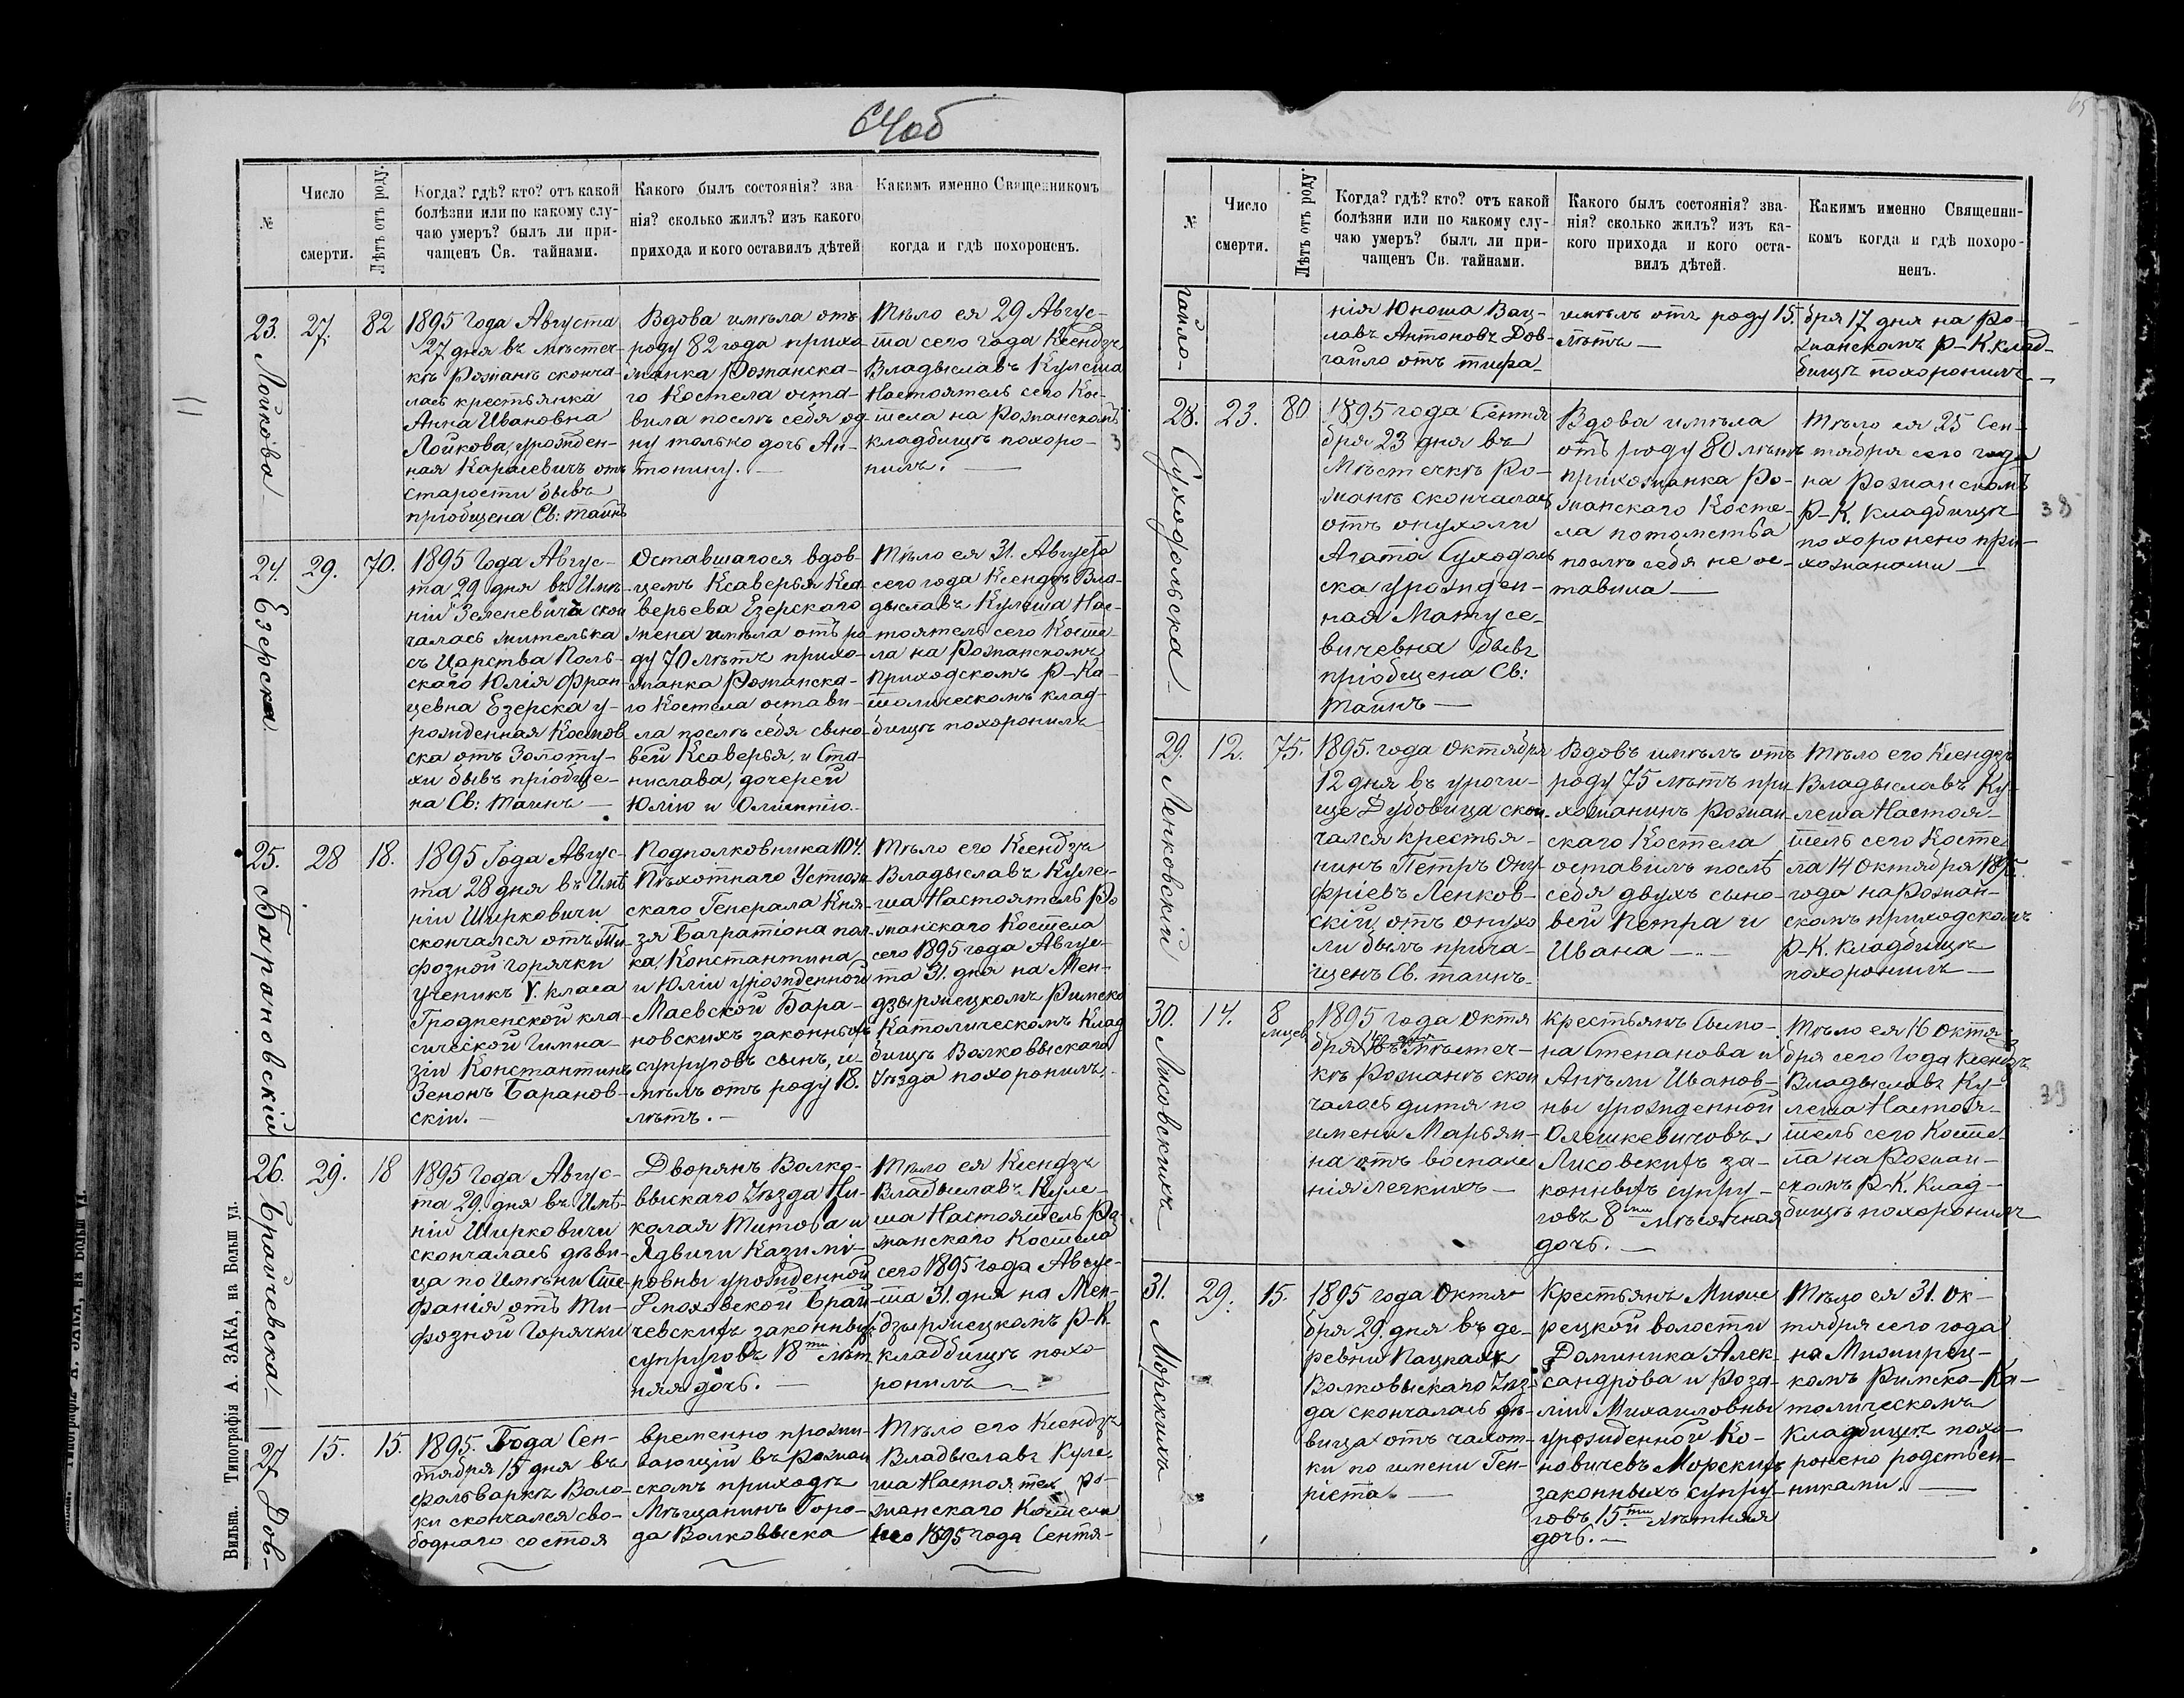 64об
65
№
Число
смерти.
Лѣтъ отъ роду.
Когда? гдѣ? кто? отъ какой
болѣзни или по какому слу-
чаю умеръ? былъ ли при-
чащенъ Св. тайнами.
Какого былъ состоянія? зва
нія? сколько жилъ? изъ какого
прихода и кого оставилъ дѣтей
Какимъ именно Священникомъ
когда и гдѣ похороненъ.
23.
Лойкова
27.
82
1895 года Августа
27 дня въ мѣстеч-
кѣ Рожанѣ сконча-
лась крестьянка
Анна Ивановна
Лойкова, урожден-
ная Каралевичъ отъ
старости бывъ
пріобщена Св: таинъ
Вдова имѣла отъ
роду 82 года прихо
жанка Рожанска-
го Костела оста-
вила послѣ себя од
ну только дочь Ан-
тонину. —
Тѣло ея 29 Авгус-
та сего года Ксендзъ
Владыславъ Кулеша
Настоятель сего Кос-
тела на Рожанскомъ
кладбищѣ похоро-
нилъ. —
24.
Езерска
29.
70.
1895 Года Авгус-
та 29 дня въ Имѣ-
ніи Зеленевича скон
чалась жителька
съ Царства Поль-
скаго Юлія Фран-
цевна Езерска у-
рожденная Космов
ска отъ Золоту-
хи бывъ пріобще-
на Св: таинъ —
Оставшагося вдов-
цемъ Ксаверья Кса-
верьева Езерскаго
жена имѣла отъ ро
ду 70 лѣтъ прихо-
жанка Рожанска-
го Костела остави-
ла послѣ себя сыно
вей Ксаверья, и Ста-
нислава, дочерей
Юлію и Олимпію.
Тѣло ея 31. Августа
сего года Ксендзъ Вла-
дыславъ Кулеша Нас-
тоятель сего Косте-
ла на Рожанскомъ
Приходскомъ Р-Ка-
толическомъ клад-
бищѣ похоронилъ
25.
Барановскій
28
18.
1895 Года Авгус-
та 28 дня въ Имѣ
ніи Ширковичи
скончался отъ Ти-
фозной горячки
ученикъ V. класа
Гродненской кла-
сической Гимна-
зіи Константинъ
Зенонъ Баранов-
скій. —
Подполковника 104.
Пѣхотнаго Устюж
скаго Генерала Кня-
зя Багратіона пол-
ка, Константина
и Юліи урожденной
Маевской Бара-
новскихъ законныхъ
супруговъ сынъ, и-
мѣлъ отъ роду 18.
лѣтъ. —
Тѣло его Ксендзъ
Владыславъ Куле-
ша Настоятель Ро
жанскаго Костела
сего 1895 года Авгус-
та 31. дня на Мен-
дзыржецкомъ Римско
Католическомъ Клад
бищѣ Волковыскаго
Уѣзда похоронилъ.
26.
Брайчевска
29.
18
1895 Года Авгус-
та 29. дня въ Имѣ-
ніи Ширковичи
скончалась дѣви-
ца по Имени Сте-
фанія отъ Ти-
фозной Горячки
Дворянъ Волко-
выскаго Уѣзда Ни-
колая Титова и
Ядвиги Казимі-
ровны урожденной
Дмоховской Брай
чевскихъ законныхъ
супруговъ 18ти лѣт
няя дочь. —
Тѣло ея Ксендзъ
Владыславъ Куле-
ша Настоятель Ро-
жанскаго Костела
сего 1895 года Авгус-
та 31. дня на Мен-
дзыржецкомъ Р-К.
кладбищѣ похо-
ронилъ —
27.
Дов-
15.
15.
1895. Года Сен-
тября 15 дня въ
фольваркѣ Воло-
ки скончался сво-
боднаго состоя
временно прожи-
вающій въ Рожан
скомъ приходѣ
Мѣщанинъ Горо-
да Волковыска
Тѣло его Ксендзъ
Владыславъ Куле-
ша Настоятел Ро-
жанскаго Костела
сего 1895 года Сентя-
Вильна. Типографія А. ЗАКА, на Больш ул.
№
Число
смерти.
Лѣтъ отъ роду.
Когда? гдѣ? кто? отъ какой
болѣзни или по какому слу-
чаю умеръ? былъ ли при-
чащенъ Св. тайнами.
Какого былъ состоянія? зва-
нія? сколько жилъ? изъ ка-
кого прихода и кого оста-
вилъ дѣтей.
Какимъ именно Священни-
комъ когда и гдѣ похоро-
ненъ.
гайло-
нія Юноша Вац-
лавъ Антоновъ Дов-
гайло отъ тифа
имѣлъ отъ роду 15.
лѣтъ —
бря 17 дня на Ро-
жанскомъ Р-К. клад-
бищѣ похоронилъ
28.
Суходольска
23.
80
1895 года Сентя
бря 23 дня въ
Мѣстечкѣ Ро-
жанѣ скончалась
отъ опухоли
Агата Суходоль
ска урожден-
ная Матусе-
вичевна бывъ
пріобщена Св:
Таинъ —
Вдова имѣла
отъ роду 80 лѣтъ
прихожанка Ро-
жанскаго Косте-
ла потомства
послѣ себя не ос-
тавила —
Тѣло ея 25 Сен-
тября сего года
на Рожанскомъ
Р-К. кладбищѣ
похоронено при-
хожанами —
38
29.
Ленковскій
12.
75.
1895. года Октября
12 дня въ урочи-
ще Дубовица скон-
чался крестья-
нинъ Петръ Ону-
фріевъ Ленков-
скій отъ опухо
ли былъ прича-
щенъ Св. таинъ.
Вдовъ имѣлъ отъ
роду 75 лѣтъ при
хожанинъ Рожан-
скаго Костела
оставилъ послѣ
себя двухъ сыно-
вей Петра и
Ивана —
Тѣло его Ксендзъ
Владыславъ Ку-
леша Настоя-
тель сего Косте
ла 14 Октября 1895.
года на Рожан-
скомъ приходскомъ
Р-К. кладбищѣ
похоронилъ —
30.
Лисовскихъ
14.
8
мѣсяц
1895 года Октя
бря 14 дня въ Мѣстеч-
кѣ Рожанѣ скон
чалось дитя по
имени Марьян-
на отъ воспале
нія легкихъ —
Крестьянъ Симо-
на Степанова и
Анѣли Иванов-
ны урожденной
Олешкевичовъ
Лисовскихъ за-
конныхъ супру-
говъ 8ми мѣсячная
дочь. —
Тѣло ея 16 Октя-
бря сего Года Ксендзъ
Владыславъ Ку-
леша Настоя-
тель сего Косте-
ла на Рожан-
скомъ Р-К. Клад-
бищѣ похоронилъ
39
31.
Морскихъ
29.
15.
1895 года Октя-
бря 29. дня въ де-
ревни Пацкахъ
Волковыскаго Уѣз-
да скончалась дѣ-
вица отъ чахот-
ки по имени Ген-
ріета. —
Крестьянъ Миже
рецкой волости
Доминика Алек-
сандрова и Роза-
ліи Михаиловны
урожденной Ко-
новичевъ Морскихъ
законныхъ супру-
говъ 15ти лѣтняя
дочь. —
Тѣло ея 31. Ок-
тября сего года
на Мижирец-
комъ Римско-Ка-
толическомъ
Кладбищѣ похо-
ронено родствен-
никами. —